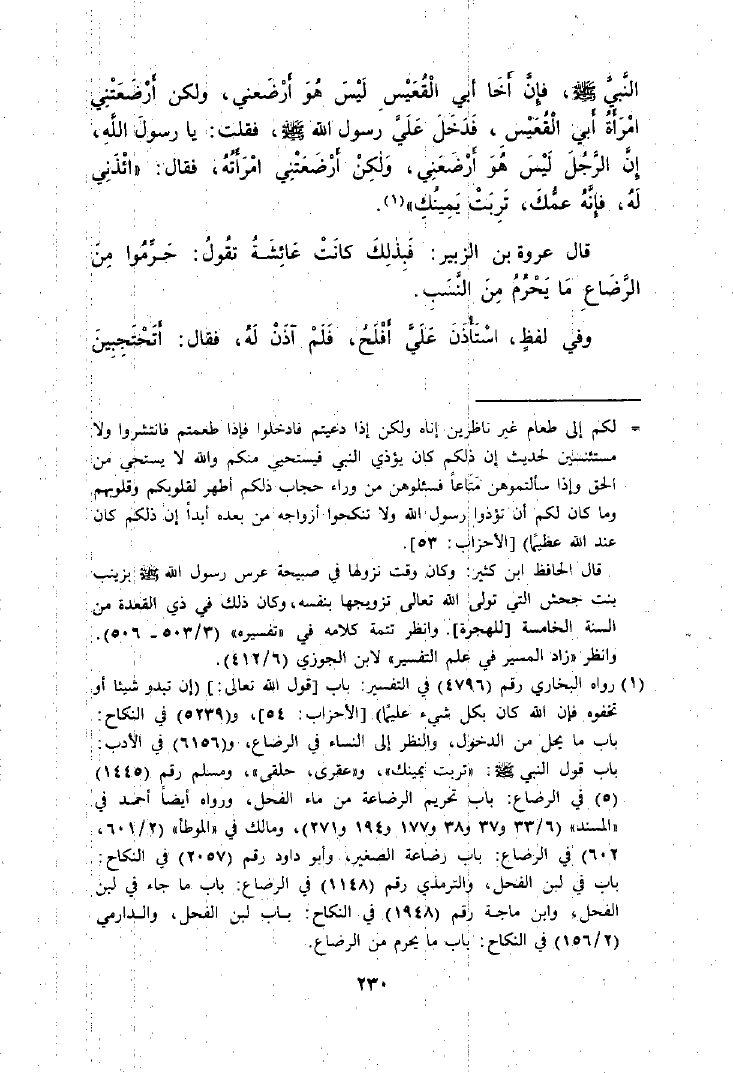 النَّبيَّ ﷺ، فإنَّ أَخَا أبي الْقُعَيْسِ لَيْسَ هُوَ أَرْضَعني، ولكن أَرْضَعَتْنِي
امْرَأَةُ أَبي الْقُعَيْس، فَدَخَلَ عَلَيَّ رسول الله ﷺ، فقلت: يا رسولَ اللَّهِ،
إِنَّ الرَّجُلَ لَيْسَ هُوَ أَرْضَعَنِي، وَلٰكِنْ أَرْضَعَتْنِي امْرَأَتُهُ، فقال: «ائْذَنِي
لَهُ، فإنَّهُ عمُّكَ، تَرِبَتْ يَمِينُكِ»(١).
قال عروة بن الزبير: فَبِذٰلِكَ كانَتْ عَائِشَةُ تقُولُ: حَرِّمُوا مِنَ
الرَّضَاعِ مَا يَحْرُمُ مِنَ النَّسَبِ.
وفي لفظٍ، اسْتَأْذَنَ عَلَيَّ أَفْلَحُ، فَلَمْ آذَنْ لَهُ، فقال: أَتَحْتَجِبِينَ
= لكم إلى طعام غير ناظرين إناه ولكن إذا دعيتم فادخلوا فإذا طعمتم فانتشروا ولا
مستئنسين لحديث إن ذلكم كان يؤذي النبي فيستحيي منكم والله لا يستحي من
الحق وإذا سألتموهن متاعاً فسئلوهن من وراء حجاب ذلكم أطهر لقلوبكم وقلوبهم
وما كان لكم أن تؤذوا رسول الله ولا تنكحوا أزواجه من بعده أبداً إن ذلكم كان
عند الله عظيمًا) [الأحزاب: ٥٣].
قال الحافظ ابن كثير: وكان وقت نزولها في صبيحة عرس رسول الله ﷺ بزينب
بنت جحش التي تولى الله تعالى تزويجها بنفسه، وكان ذلك في ذي القعدة من
السنة الخامسة [للهجرة]. وانظر تتمة كلامه في «تفسيره» (٥٠٣/٣ ـ ٥٠٦).
وانظر «زاد المسير في علم التفسير» لابن الجوزي (٤١٢/٦).
(١) رواه البخاري رقم (٤٧٩٦) في التفسير: باب [قول الله تعالى:] (إن تبدو شيئا أو
تخفوه فإن الله كان بكل شيء عليمًا) [الأحزاب: ٥٤]، و(٥٢٣٩) في النكاح:
باب ما يحل من الدخول، والنظر إلى النساء في الرضاع، و(٦١٥٦) في الأدب:
باب قول النبي ﷺ: «تربت يمينك»، و«عقرى، حلقى»، ومسلم رقم (١٤٤٥)
(٥) في الرضاع: باب تحريم الرضاعة من ماء الفحل، ورواه أيضاً أحمد في
«المسند» (٣٣/٦ و٣٧ و٣٨ و١٧٧ و١٩٤ و٢٧١)، ومالك في «الموطأ» (٦٠١/٢،
٦٠٢) في الرضاع: باب رضاعة الصغير، وأبو داود رقم (٢٠٥٧) في النكاح:
باب في لبن الفحل، والترمذي رقم (١١٤٨) في الرضاع: باب ما جاء في لبن
الفحل، وابن ماجة رقم (١٩٤٨) في النكاح: باب لبن الفحل، والدارمي
(١٥٦/٢) في النكاح: باب ما يحرم من الرضاع.
٢٣٠